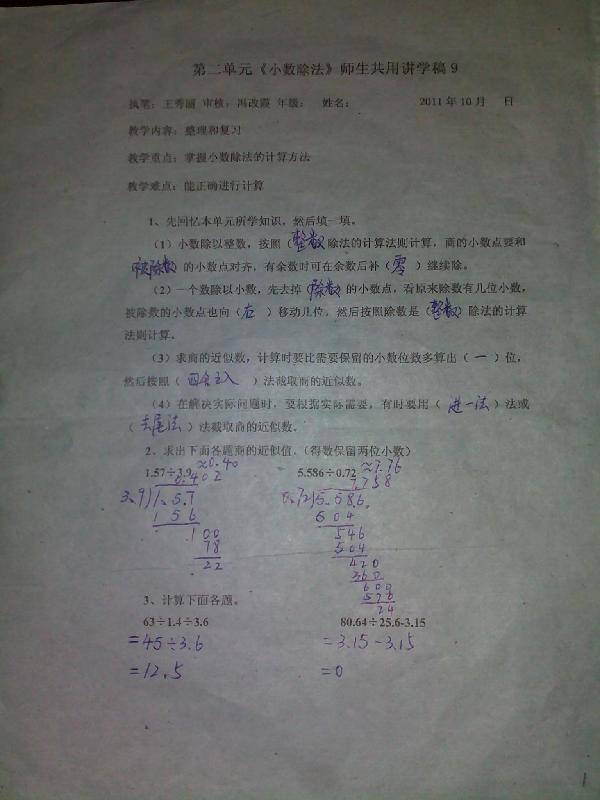 第二单元《小数除法》师生共用讲学稿9
执笔：王秀丽 审核：冯改霞 年级： 姓名： 2011年10月 日
教学内容：整理和复习
教学重点：掌握小数除法的计算方法
教学难点：能正确进行计算
1、先回忆本单元所学知识，然后填一填。
（1）小数除以整数，按照（整数）除法的计算法则计算，商的小数点要和
被除数 的小数点对齐，有余数时可在余数后补（零）继续除。
（2）一个数除以小数，先去掉（除数）的小数点，看原来除数有几位小数，
被除数的小数点也向（右）移动几位，然后按照除数是（整数）除法的计算
法则计算。
（3）求商的近似数，计算时要比需要保留的小数位数多算出（一）位，
然后按照（四舍五入）法截取商的近似数。
（4）在解决实际问题时，要根据实际需要，有时要用（进一法）法或
（去尾法）法截取商的近似数。
2、求出下面各题商的近似值。（得数保留两位小数）
1.57÷3.9≈0.40 5.586÷0.72≈7.76
0.402 7.758
3.9)1.5.7 0.72)5.58.6
156 504
100 546
78 504
22 420
360
600
576
24
3、计算下面各题。
63÷1.4÷3.6 80.64÷25.6-3.15
=45÷3.6 =3.15-3.15
=12.5 =0
1